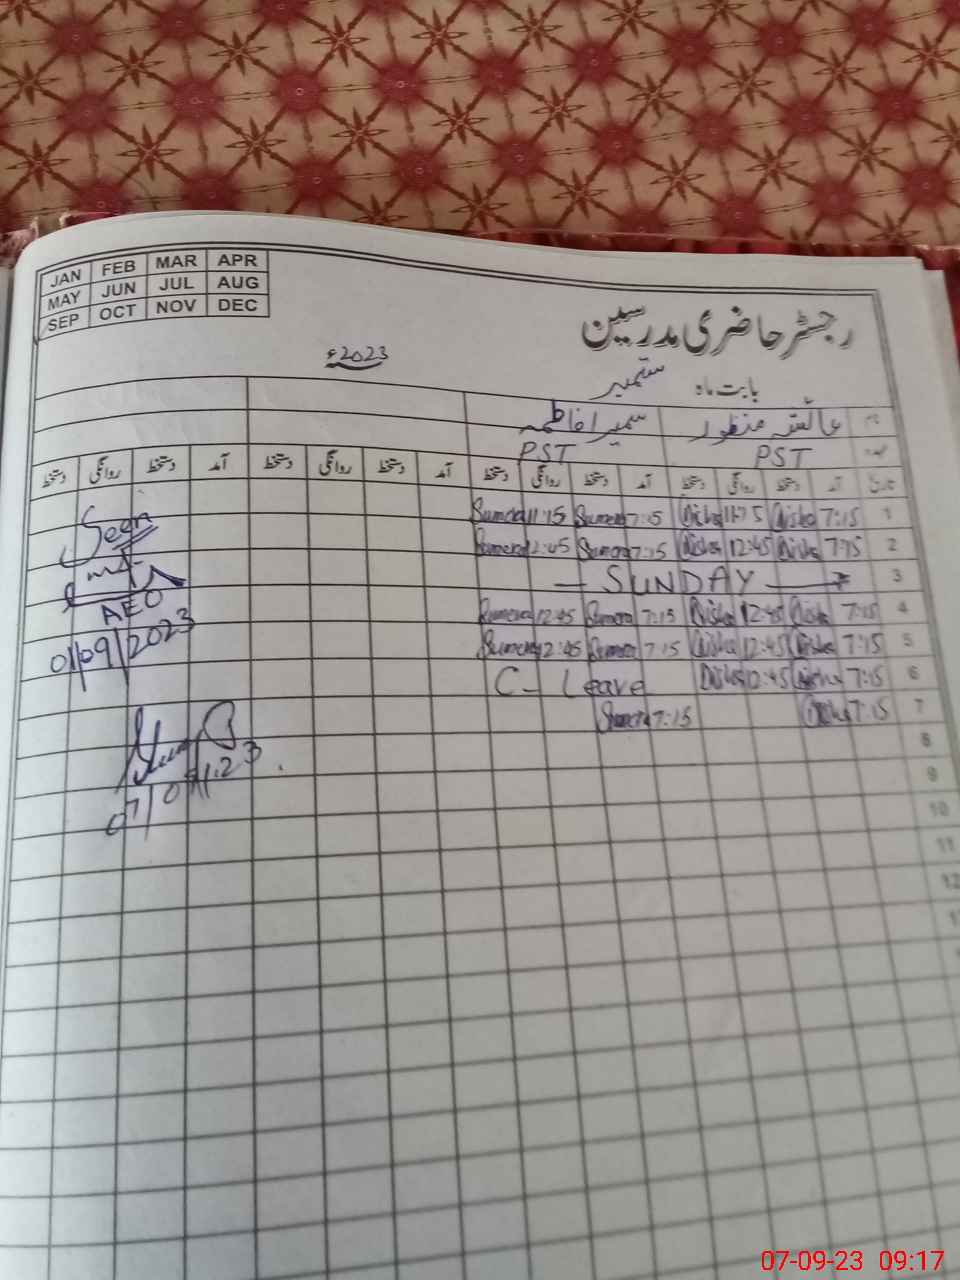 JAN FEB MAR APR
MAY JUN JUL AUG
SEP OCT NOV DEC
رجسٹر حاضری مدرسین
بابت ماہ ستمبر 2023ء
نام عائشہ منظور سمیرا فاطمہ
عہدہ PST PST
تاریخ آمد دستخط روانگی دستخط آمد دستخط روانگی دستخط آمد دستخط روانگی دستخط آمد دستخط روانگی دستخط
1 7:15 Aisha 11:15 Aisha 7:15 Sumera 11:15 Sumera
2 7:15 Aisha 12:45 Aisha 7:15 Sumera 12:45 Sumera
3 SUNDAY
4 7:15 Aisha 12:45 Aisha 7:15 Sumera 12:45 Sumera
5 7:15 Aisha 12:45 Aisha 7:15 Sumera 12:45 Sumera
6 7:15 Aisha 12:45 Aisha C- Leave
7 7:15 Aisha 7:15 Sumera
8
9
10
11
12
Seen
AEO
01/09/2023
07-09-23 09:17